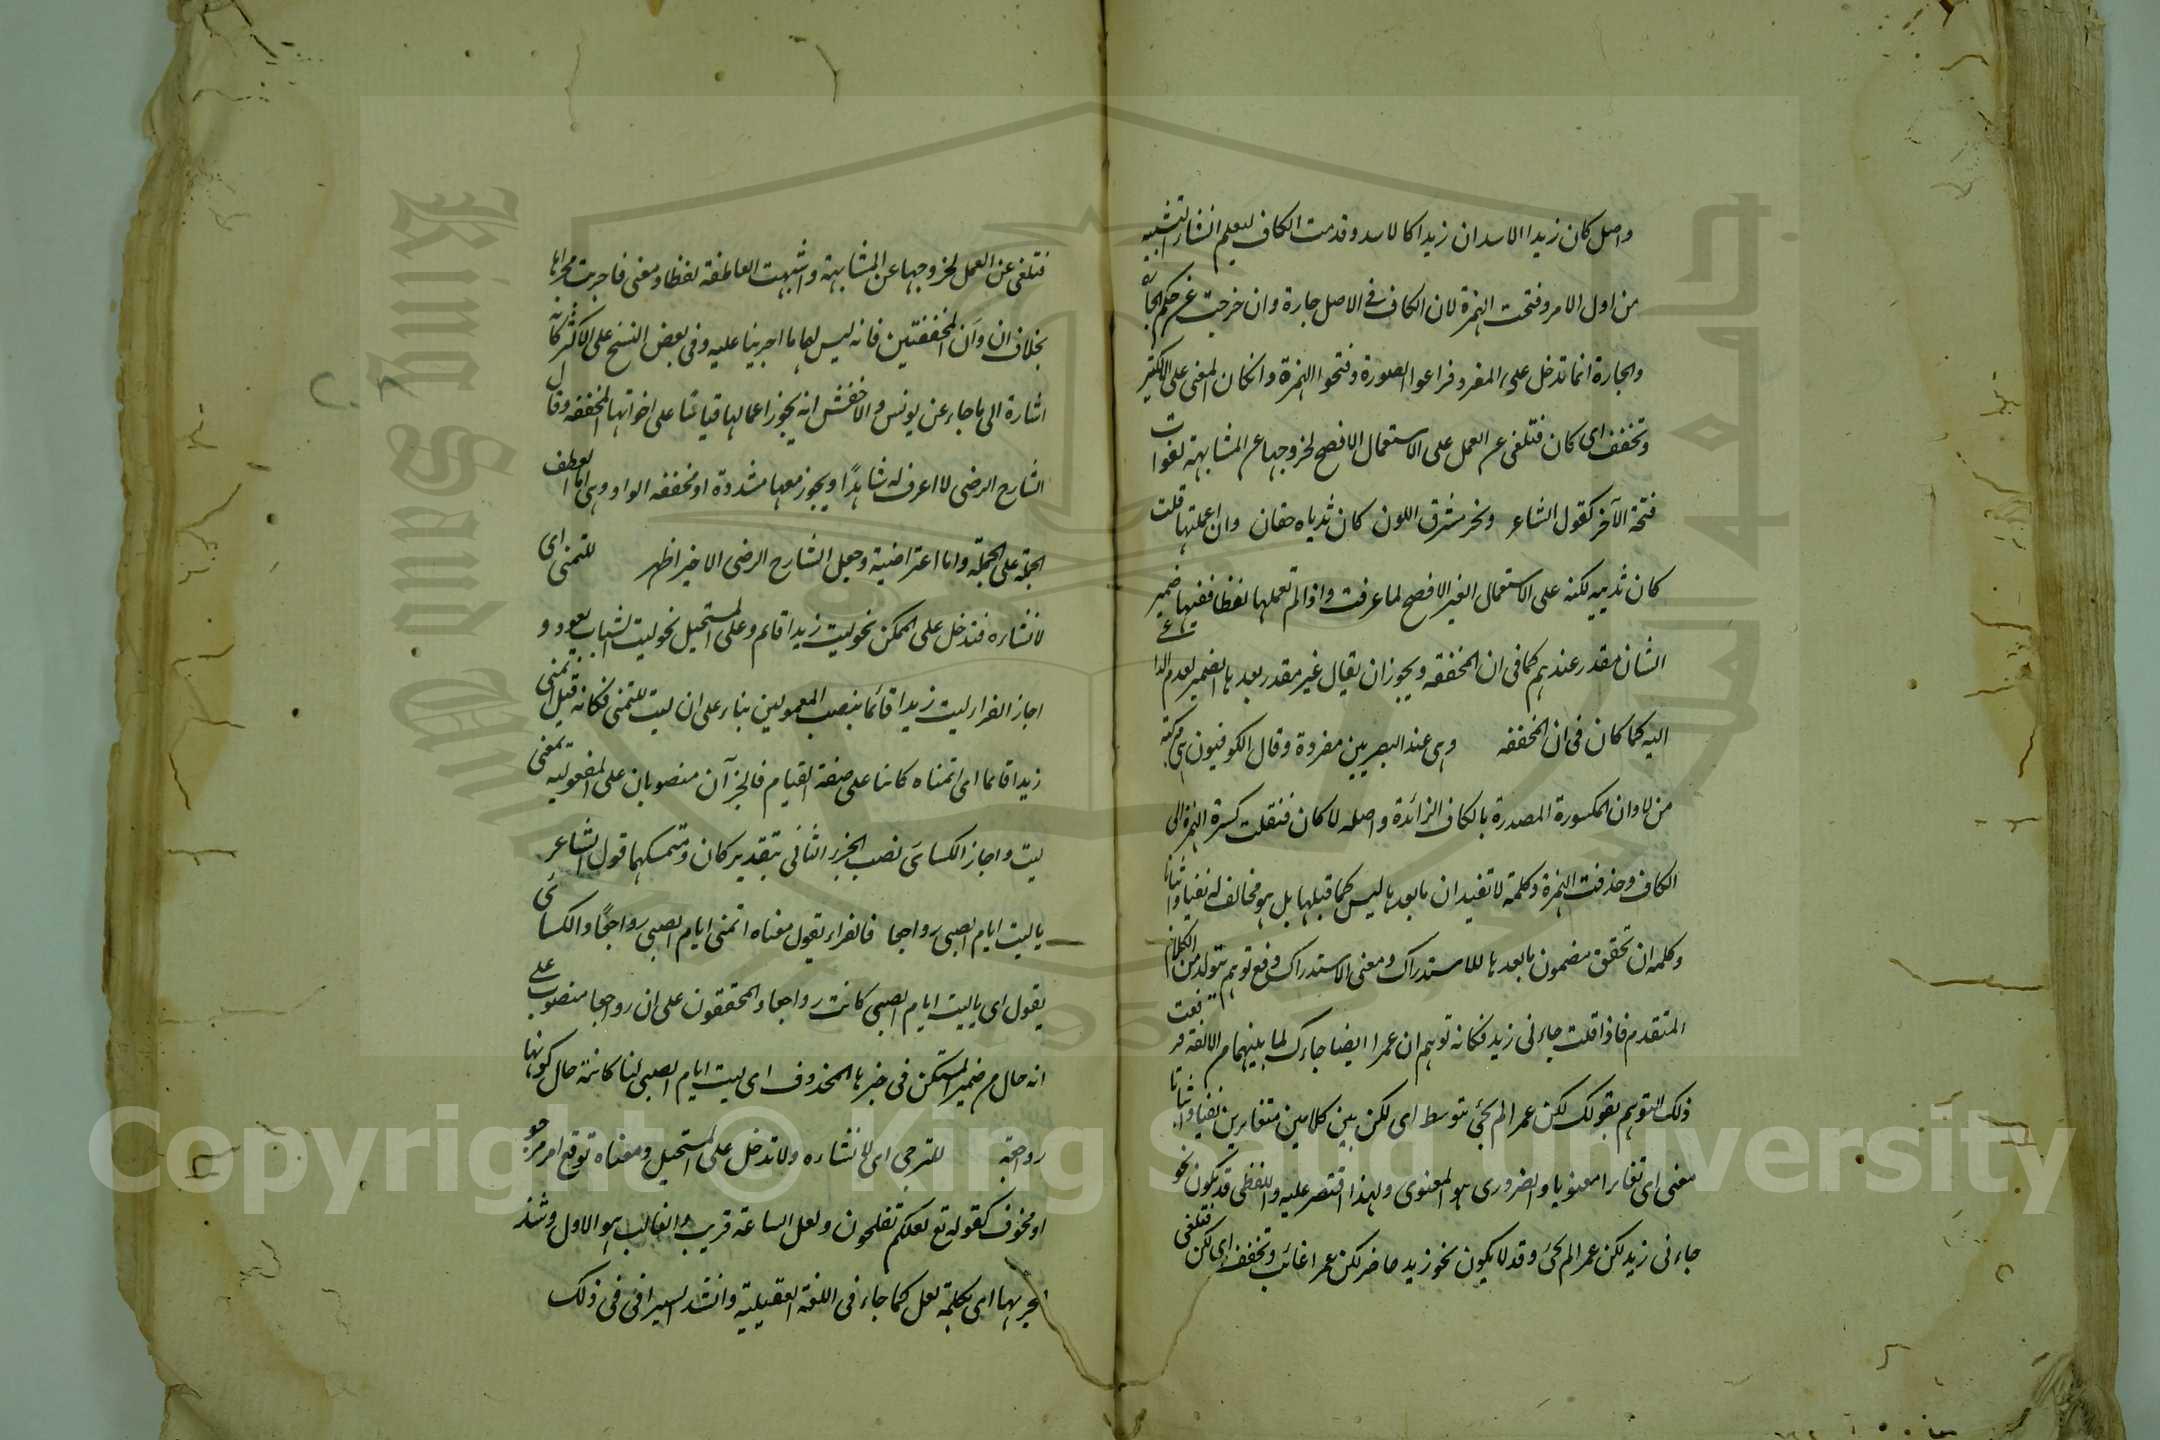 واصل كان زيدا الاسد ان زيدا كالاسد وقدمت الكاف ليعلم انشاء التشبيه
من اول الامر وفتحت الهمزة لان الكاف في الاصل جارة وان خرجت عن حكم الجارة
والجارة انما تدخل على المفرد فراعوا الصورة وفتحوا الهمزة وانكان المعنى على الكسر
وتخفف اى كان فتلغى عن العمل على الاستعمال الافصح لخروجها عن المشابهة لفوات
فتحة الآخر كقول الشاعر ونحر مشرق اللون كان ثدياه حقان وان اعملتها قلت
كان ثدييه لكنه على الاستعمال الغير الافصح لما عرفت واذا لم تعملها لفظا ففيها ضمير
الشان مقدر عندهم كما فى ان المخففة ويجوز ان يقال غير مقدر بعدها الضمير لعدم الداعى
اليه كما كان فى ان المخففه وهى عند البصريين مفردة وقال الكوفيون هى مركبة
من لا وان المكسورة المصدرة بالكاف الزائدة واصله لا كان فنقلت كسرة الهمزة الى
الكاف وحذفت الهمزة وكلمة لا تفيد ان ما بعدها ليس كما قبلها بل هو مخالف له نفيا واثباتا
وكلمه ان تحقق مضمون ما بعدها للاستدراك ومعنى الاستدراك رفع توهم يتولد من الكلام
المتقدم فاذا قلت جاءنى زيد فكانه توهم ان عمرا ايضا جاءك لما بينهما من الالفة فرفعت
ذلك التوهم بقولك لكن عمرا لم يجئ يتوسط اى لكن بين كلامين متغايرين نفيا واثباتا
معنى اى تغايرا معنويا والضرورى هو المعنوى ولهذا اقتصر عليه واللفظى قد يكون نحو
جاءنى زيد لكن عمرا لم يجئ وقد لا يكون نحو زيد حاضر لكن عمرا غائب وتخفف اى لكن فتلغى
فتلغى عن العمل لخروجها عن المشابهة واشبهت العاطفة لفظا ومعنى فاجريت مجراها
بخلاف ان وأن المخففتين فانه ليس لهما ما اجريتا عليه وفى بعض النسخ على الاكثر كانه
اشارة الى ما جاء عن يونس والاخفش انه يجوز اعمالها قياسا على اخواتها المخففه وقال
الشارح الرضى لا اعرف له شاهدًا ويجوز معها مشددة او مخففه الواو وهى اما لعطف
الجملة على الجملة واما اعتراضية وجعل الشارح الرضى الاخير اظهر للتمنى اى
لانشاءه فتدخل على الممكن نحو ليت زيدا قائم وعلى المستحيل نحو ليت الشباب يعود و
اجاز الفراء ليت زيدا قائما بنصب المعمولين بناء على ان ليت للتمنى فكانه قيل اتمنى
زيدا قائما اى اتمناه كائنا على صفة القيام فالجزآن منصوبان على المفعوليه بمعنى
ليت واجاز الكسائى نصب الجزء الثانى بتقدير كان ومتمسكهما قول الشاعر
يا ليت ايام الصبى رواجعا فالفراء يقول معناه اتمنى ايام الصبى رواجعًا والكسائى
يقول اى يا ليت ايام الصبى كانت رواجعا والمحققون على ان رواجعا منصوب على
انه حال من ضمير المستكن فى خبرها المحذوف اى ليت ايام الصبى لنا كائنة حال كونها
رواجعة للترجى اى لانشاءه ولا تدخل على المستحيل ومعناه توقع امر مرجو
او مخوف كقوله تع لعلكم تفلحون ولعل الساعة قريب والغالب هو الاول وشذ
الجر بها اى بكلمة لعل كما جاء فى اللغة العقيلية وانشد السيرافى فى ذلك
Copyright © King Saud University